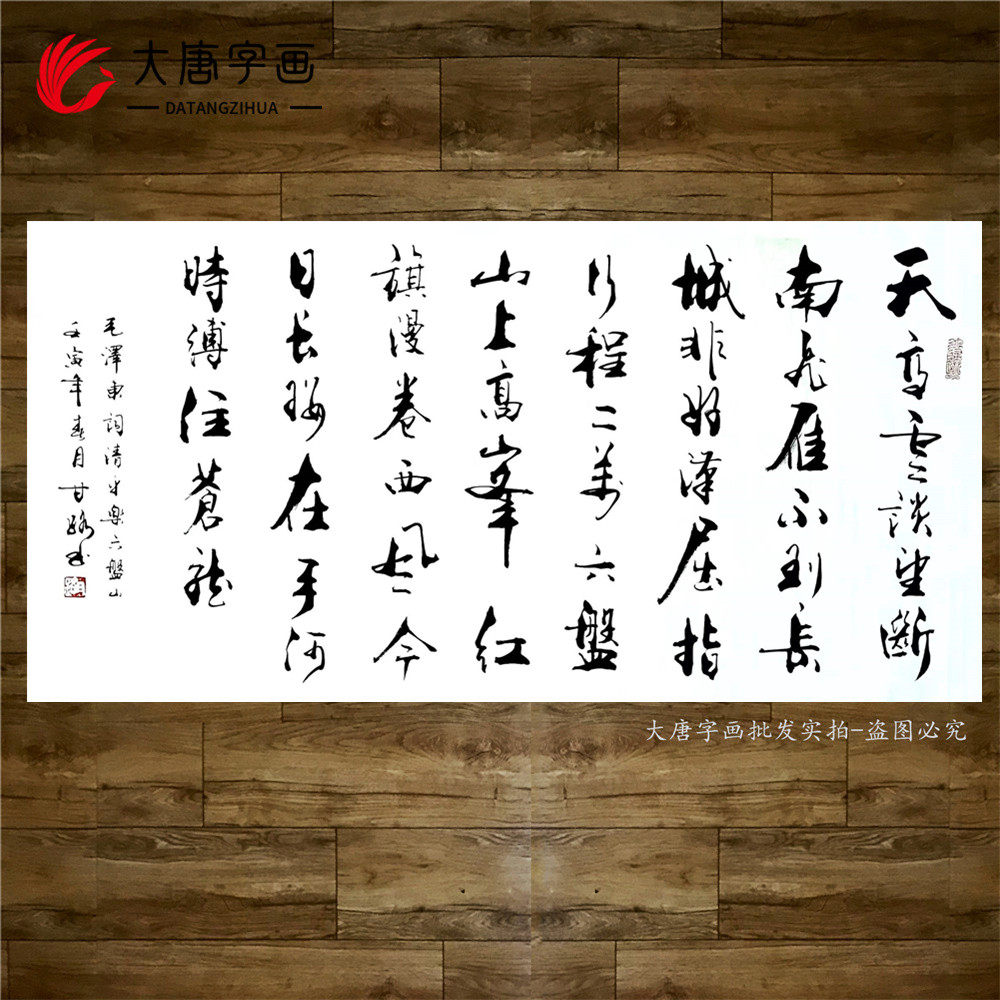 大唐字画
DATANGZIHUA
天高雲談望斷
南飛雁不到長
城非好漢屈指
行程二萬六盤
山上高峯紅
旗漫卷西風今
日長纓在手何
時縛住蒼龍
毛澤東詞清平樂六盤山
壬寅年春月甘路書
大唐字画批发实拍-盗图必究